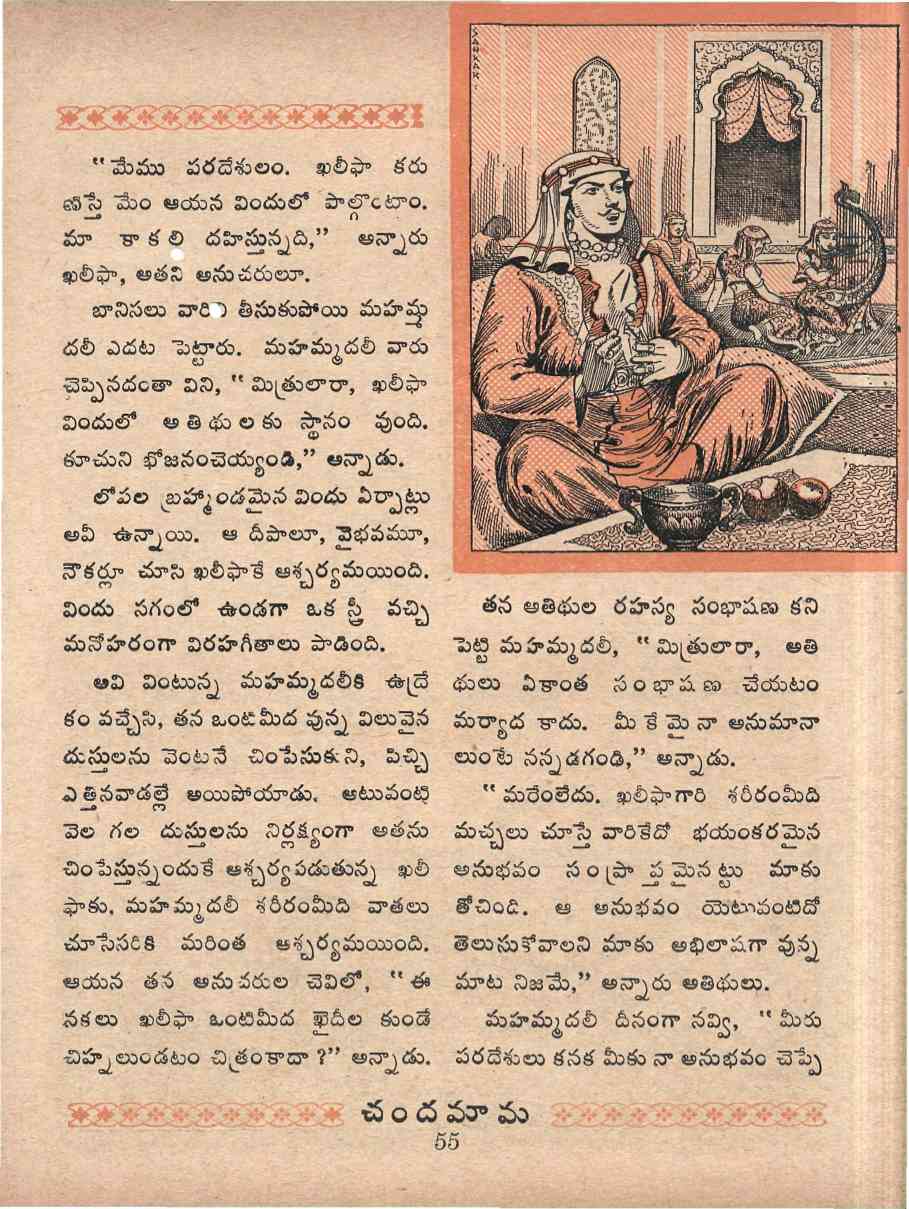 SANKAR
“మేము పరదేశులం. ఖలీఫా కరు
ణిస్తే మేం ఆయన విందులో పాల్గొంటాం.
మా కాకలి దహిస్తున్నది,” అన్నారు
ఖలీఫా, అతని అనుచరులూ.
బానిసలు వారిని తీసుకుపోయి మహమ్మ
దలీ ఎదట పెట్టారు. మహమ్మదలీ వారు
చెప్పినదంతా విని, “మిత్రులారా, ఖలీఫా
విందులో అతిథులకు స్థానం వుంది.
కూచుని భోజనంచెయ్యండి,” అన్నాడు.
లోపల బ్రహ్మాండమైన విందు ఏర్పాట్లు
అవీ ఉన్నాయి. ఆ దీపాలూ, వైభవమూ,
నౌకర్లూ చూసి ఖలీఫాకే ఆశ్చర్యమయింది.
విందు సగంలో ఉండగా ఒక స్త్రీ వచ్చి
మనోహరంగా విరహగీతాలు పాడింది.
అవి వింటున్న మహమ్మదలీకి ఉద్రే
కం వచ్చేసి, తన ఒంటిమీద వున్న విలువైన
దుస్తులను వెంటనే చింపేసుకుని, పిచ్చి
ఎత్తినవాడల్లే అయిపోయాడు. అటువంటి
వెల గల దుస్తులను నిర్లక్ష్యంగా అతను
చింపేస్తున్నందుకే ఆశ్చర్యపడుతున్న ఖలీ
ఫాకు, మహమ్మదలీ శరీరంమీది వాతలు
చూసేసరికి మరింత ఆశ్చర్యమయింది.
ఆయన తన అనుచరుల చెవిలో, “ఈ
నకలు ఖలీఫా ఒంటిమీద ఖైదీల కుండే
చిహ్నలుండటం చిత్రంకాదా ?” అన్నాడు.
తన అతిథుల రహస్య సంభాషణ కని
పెట్టి మహమ్మదలీ, “మిత్రులారా, అతి
థులు ఏకాంత సంభాషణ చేయటం
మర్యాద కాదు. మీ కేమైనా అనుమానా
లుంటే నన్నడగండి,” అన్నాడు.
“మరేంలేదు. ఖలీఫాగారి శరీరంమీది
మచ్చలు చూస్తే వారికేదో భయంకరమైన
అనుభవం సంప్రాప్తమైనట్టు మాకు
తోచింది. ఆ అనుభవం యెటువంటిదో
తెలుసుకోవాలని మాకు అభిలాషగా వున్న
మాట నిజమే,” అన్నారు అతిథులు.
మహమ్మదలీ దీనంగా నవ్వి, “మీరు
పరదేశులు కనక మీకు నా అనుభవం చెప్పే
చందమామ
55